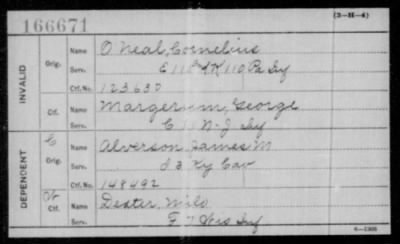 166671
(3-H-4)
INVALID
Orig.
Name O'Neal, Cornelius
Serv. E & K 110 Pa Inf
Ctf. No. 123630
Ctf.
Name Margerum, George
Serv. C N-J Inf
DEPENDENT
Orig.
Name Alverson James M
Serv. d 3 Ky Cav
Ctf. No. 148492
Ctf.
Name Dexter, Milo
Serv. F 7 Wis Inf